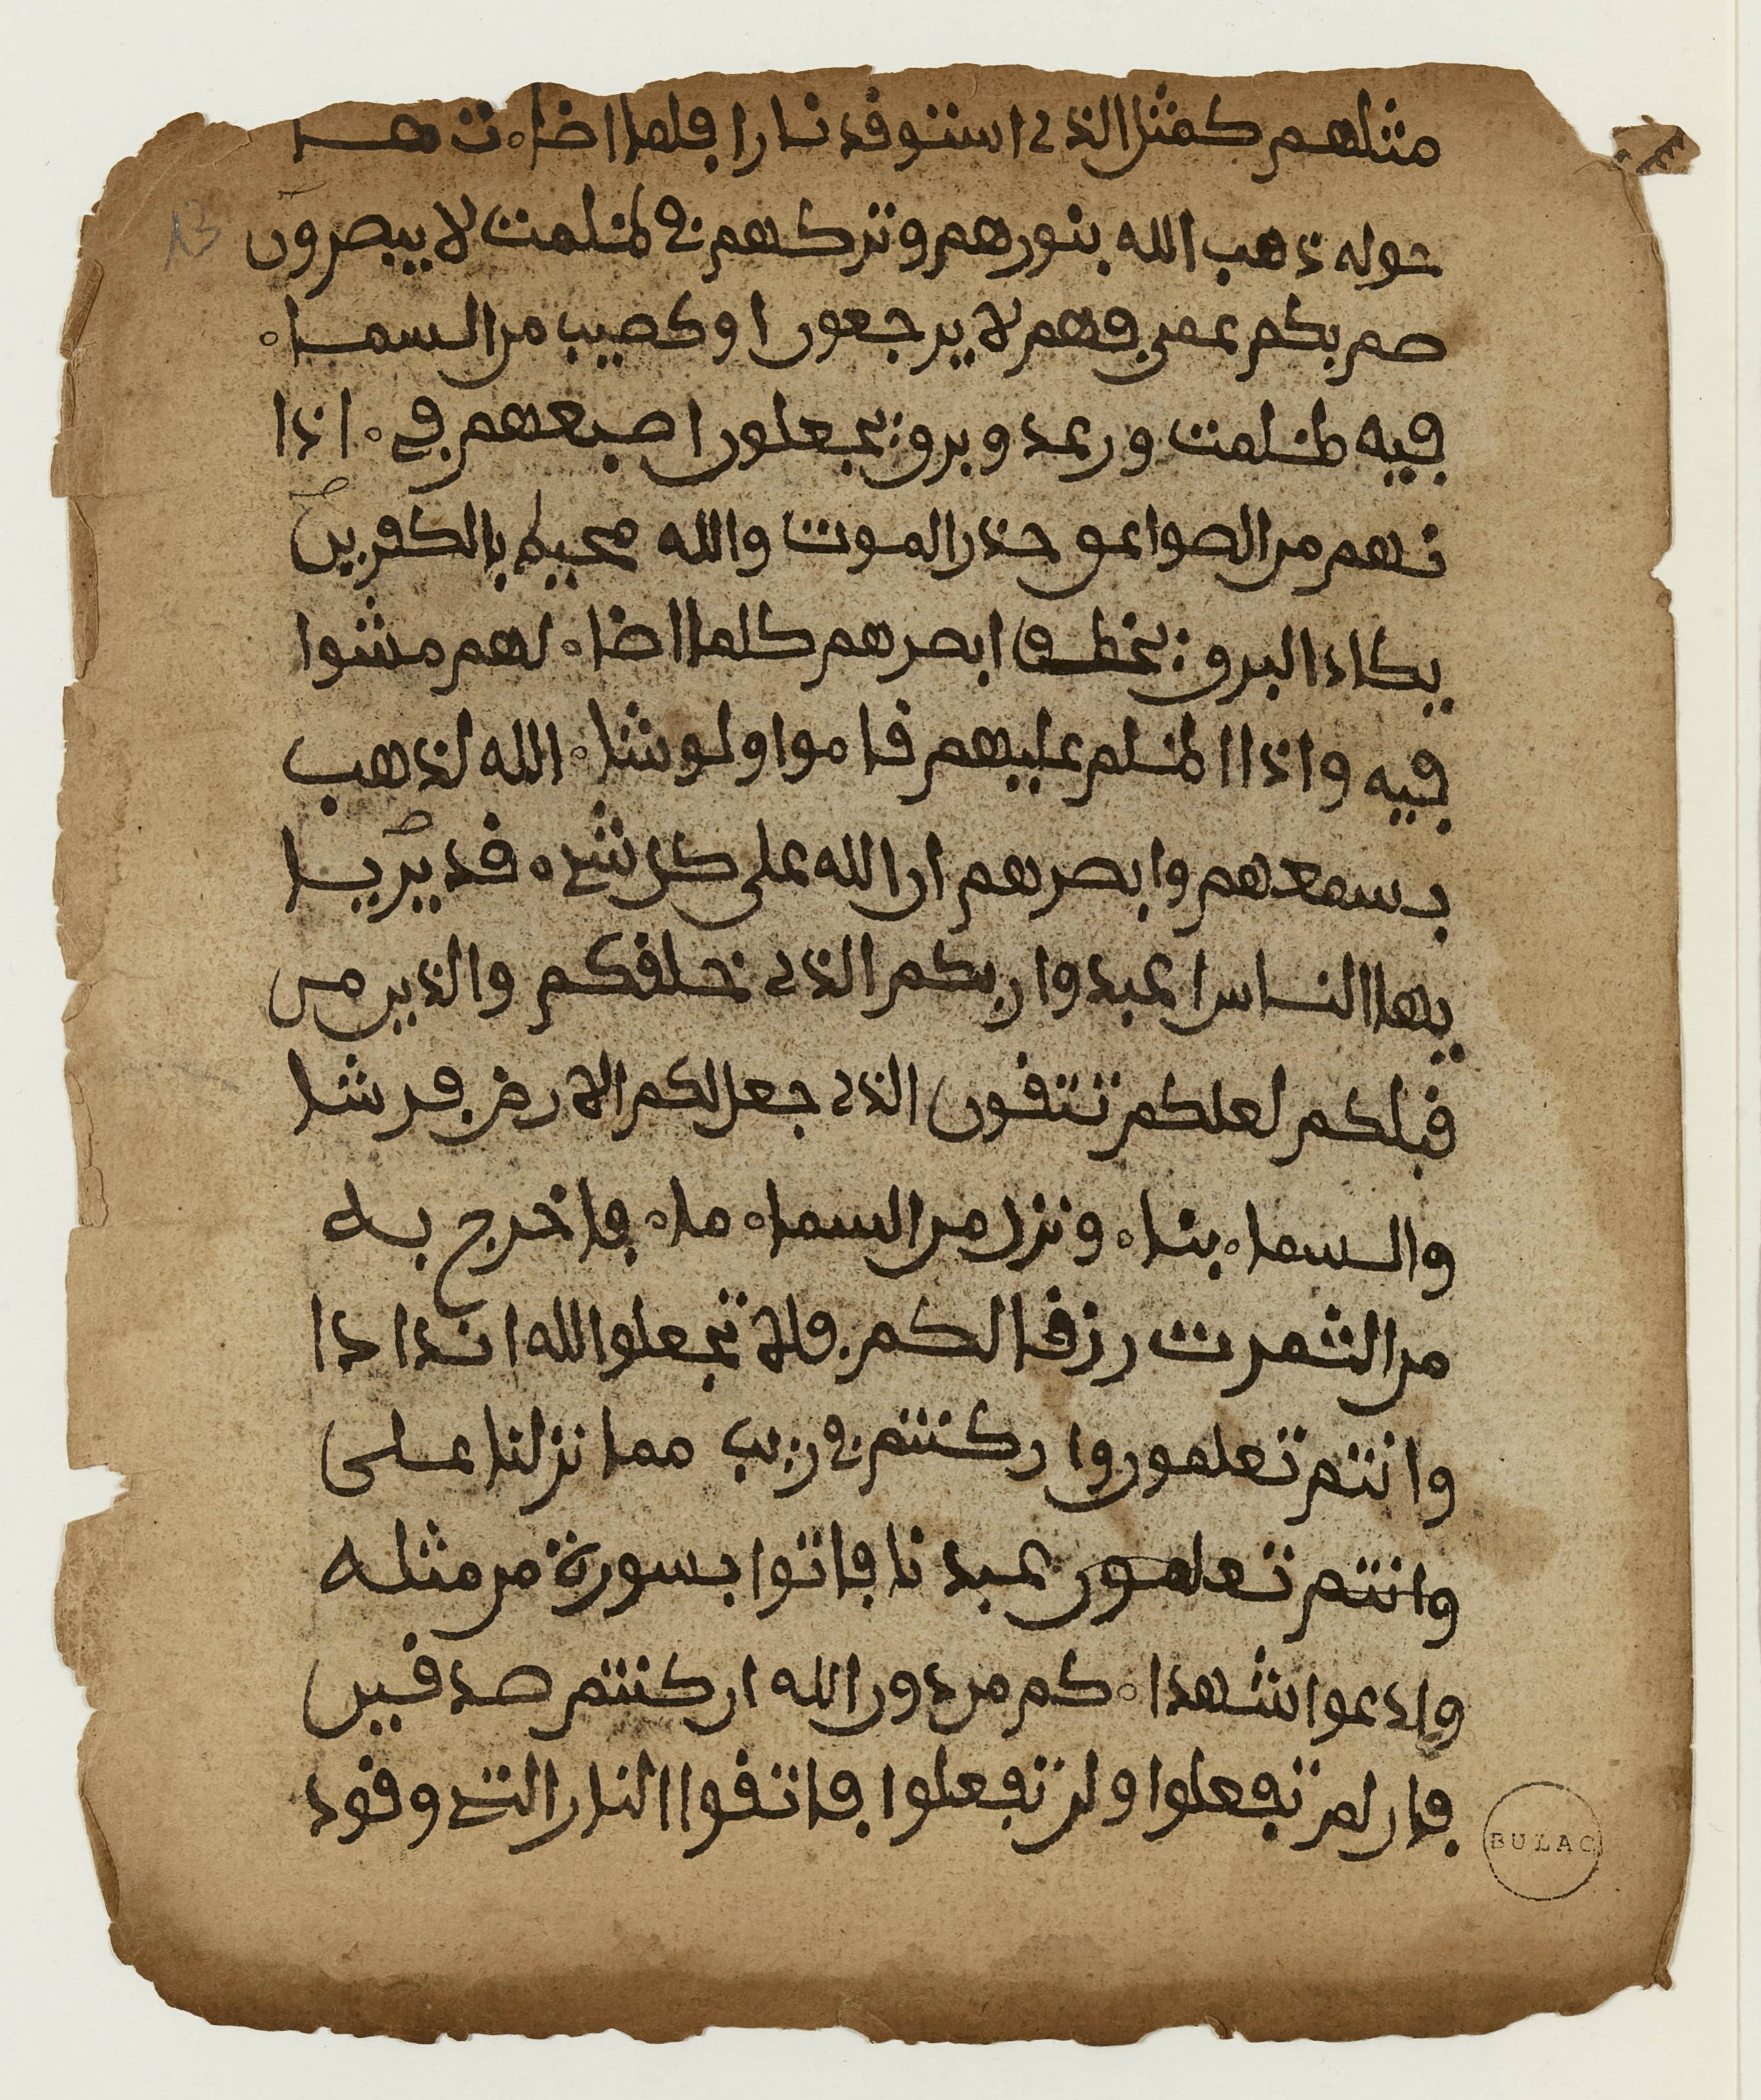 مثلهم كمثل الذي استوقد نارا فلما اضاءت ما
13
حوله ذهب الله بنورهم وتركهم في ظلمت لا يبصرون
صم بكم عمي فهم لا يرجعون او كصيب من السماء
فيه ظلمت ورعد وبرق يجعلون اصبعهم في ءاذا
نهم من الصواعق حذر الموت والله محيط بالكفرين
يكاد البرق يخطف ابصرهم كلما اضاء لهم مشوا
فيه واذا اظلم عليهم قاموا ولو شاء الله لذهب
بسمعهم وابصرهم ان الله على كل شيء قدير يا
يها الناس اعبدوا ربكم الذي خلقكم والذين من
قبلكم لعلكم تتقون الذي جعل لكم الارض فرشا
والسماء بناء ونزل من السماء ماء فاخرج به
من الثمرت رزقا لكم فلا تجعلوا لله اندادا
وانتم تعلمون وان كنتم في ريب مما نزلنا على
وانتم تعلمون عبدنا فاتوا بسورة من مثله
وادعوا شهداءكم من دون الله ان كنتم صدقين
فان لم تفعلوا ولن تفعلوا فاتقوا النار التي وقود
BULAC